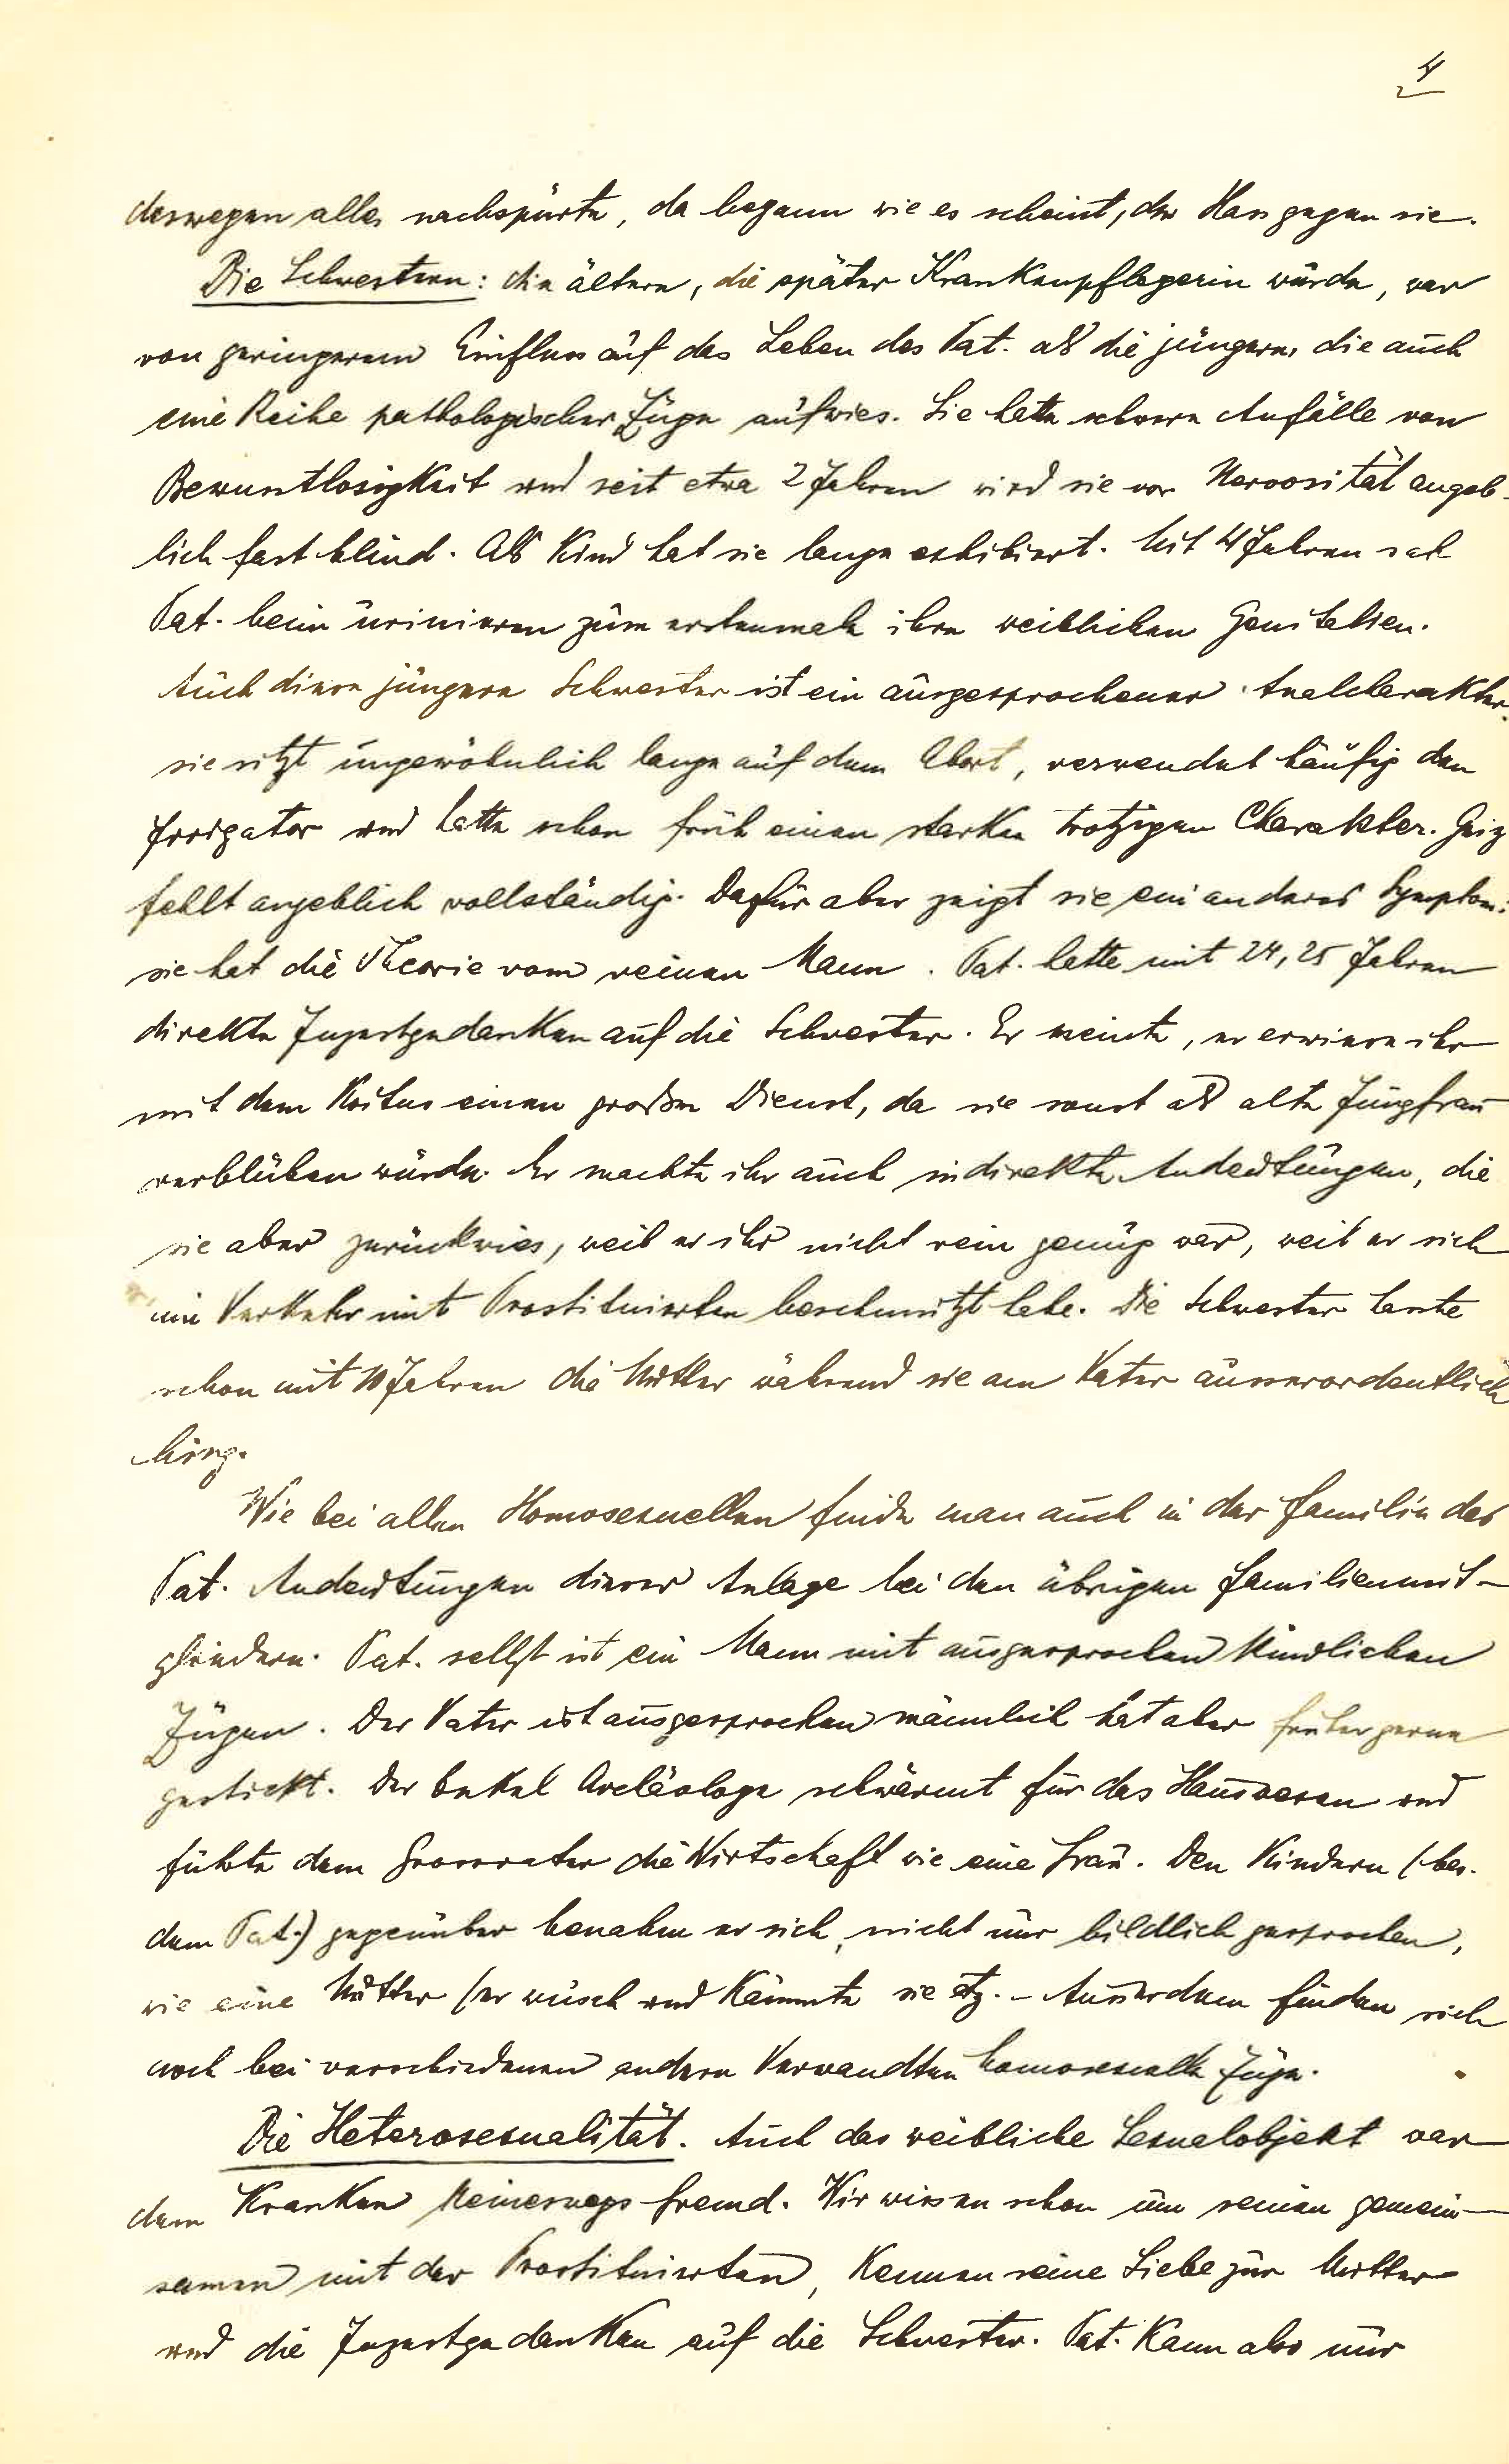 4
deswegen alles nachspürte, da begann wie es scheint, der Hass gegen sie.
Die Schwestern: die ältere, die später Krankenpflegerin würde, war
von geringerem Einfluss auf das Leben des Pat. als die jüngere, die auch
eine Reihe pathologischer Züge aufwies. Sie hatte schwere Anfälle von
Bewusstlosigkeit und seit etwa 2 Jahren wird sie vor Nervosität angeb-
lich fast blind. Als Kind hat sie lange exhibiert. Mit 4 Jahren sah
Pat. beim urinieren zum erstenmale ihre weiblichen Genitalien.
Auch diese jüngere Schwester ist ein ausgesprochener Analcharakter.
sie sitzt ungewöhnlich lange auf dem Abort, verwendet häufig den
Irrigator und hatte schon früh einen starken trotzigen Charakter. Geiz
fehlt angeblich vollständig. Dafür aber zeigt sie ein anderes Symptom:
sie hat die Theorie vom reinen Mann. Pat. hatte mit 24, 25 Jahren
direkte Inzestgedanken auf die Schwester. Er meinte, er erweise ihr
mit dem Koitus einen großen Dienst, da sie sonst als alte Jungfrau
verblühen würde. Er machte ihr auch indirekte Andeutungen, die
sie aber zurückwies, weil er ihr nicht rein genug war, weil er sich
im Verkehr mit Prostituierten beschmutzt habe. Die Schwester hasste
schon mit 10 Jahren die Mutter während sie am Vater ausserordentlich
hing.
Wie bei allen Homosexuellen finde man auch in der Familie des
Pat. Andeutungen dieser Anlage bei den übrigen Familienmit-
gliedern. Pat. selbst ist ein Mann mit ausgesprochen kindlichen
Zügen. Der Vater ist ausgesprochen männlich hat aber früher gerne
gestickt. Der Onkel Archäologe schwärmt für das Hauswesen und
führte dem Grossvater die Wirtschaft wie eine Frau. Den Kindern (bes.
dem Pat.) gegenüber benahm er sich, nicht nur bildlich gesprochen,
wie eine Mutter (er wusch und kämmte sie etz. - Ausserdem finden sich
noch bei verschiedenen andern Verwandten homosexuelle Züge.
Die Heterosexualität. Auch das weibliche Sexualobjekt war
dem Kranken keineswegs fremd. Wir wissen schon um seinen gemein-
samen mit der Prostituierten, kennen seine Liebe zur Mutter
und die Inzestgedanken auf die Schwester. Pat. kann also nur